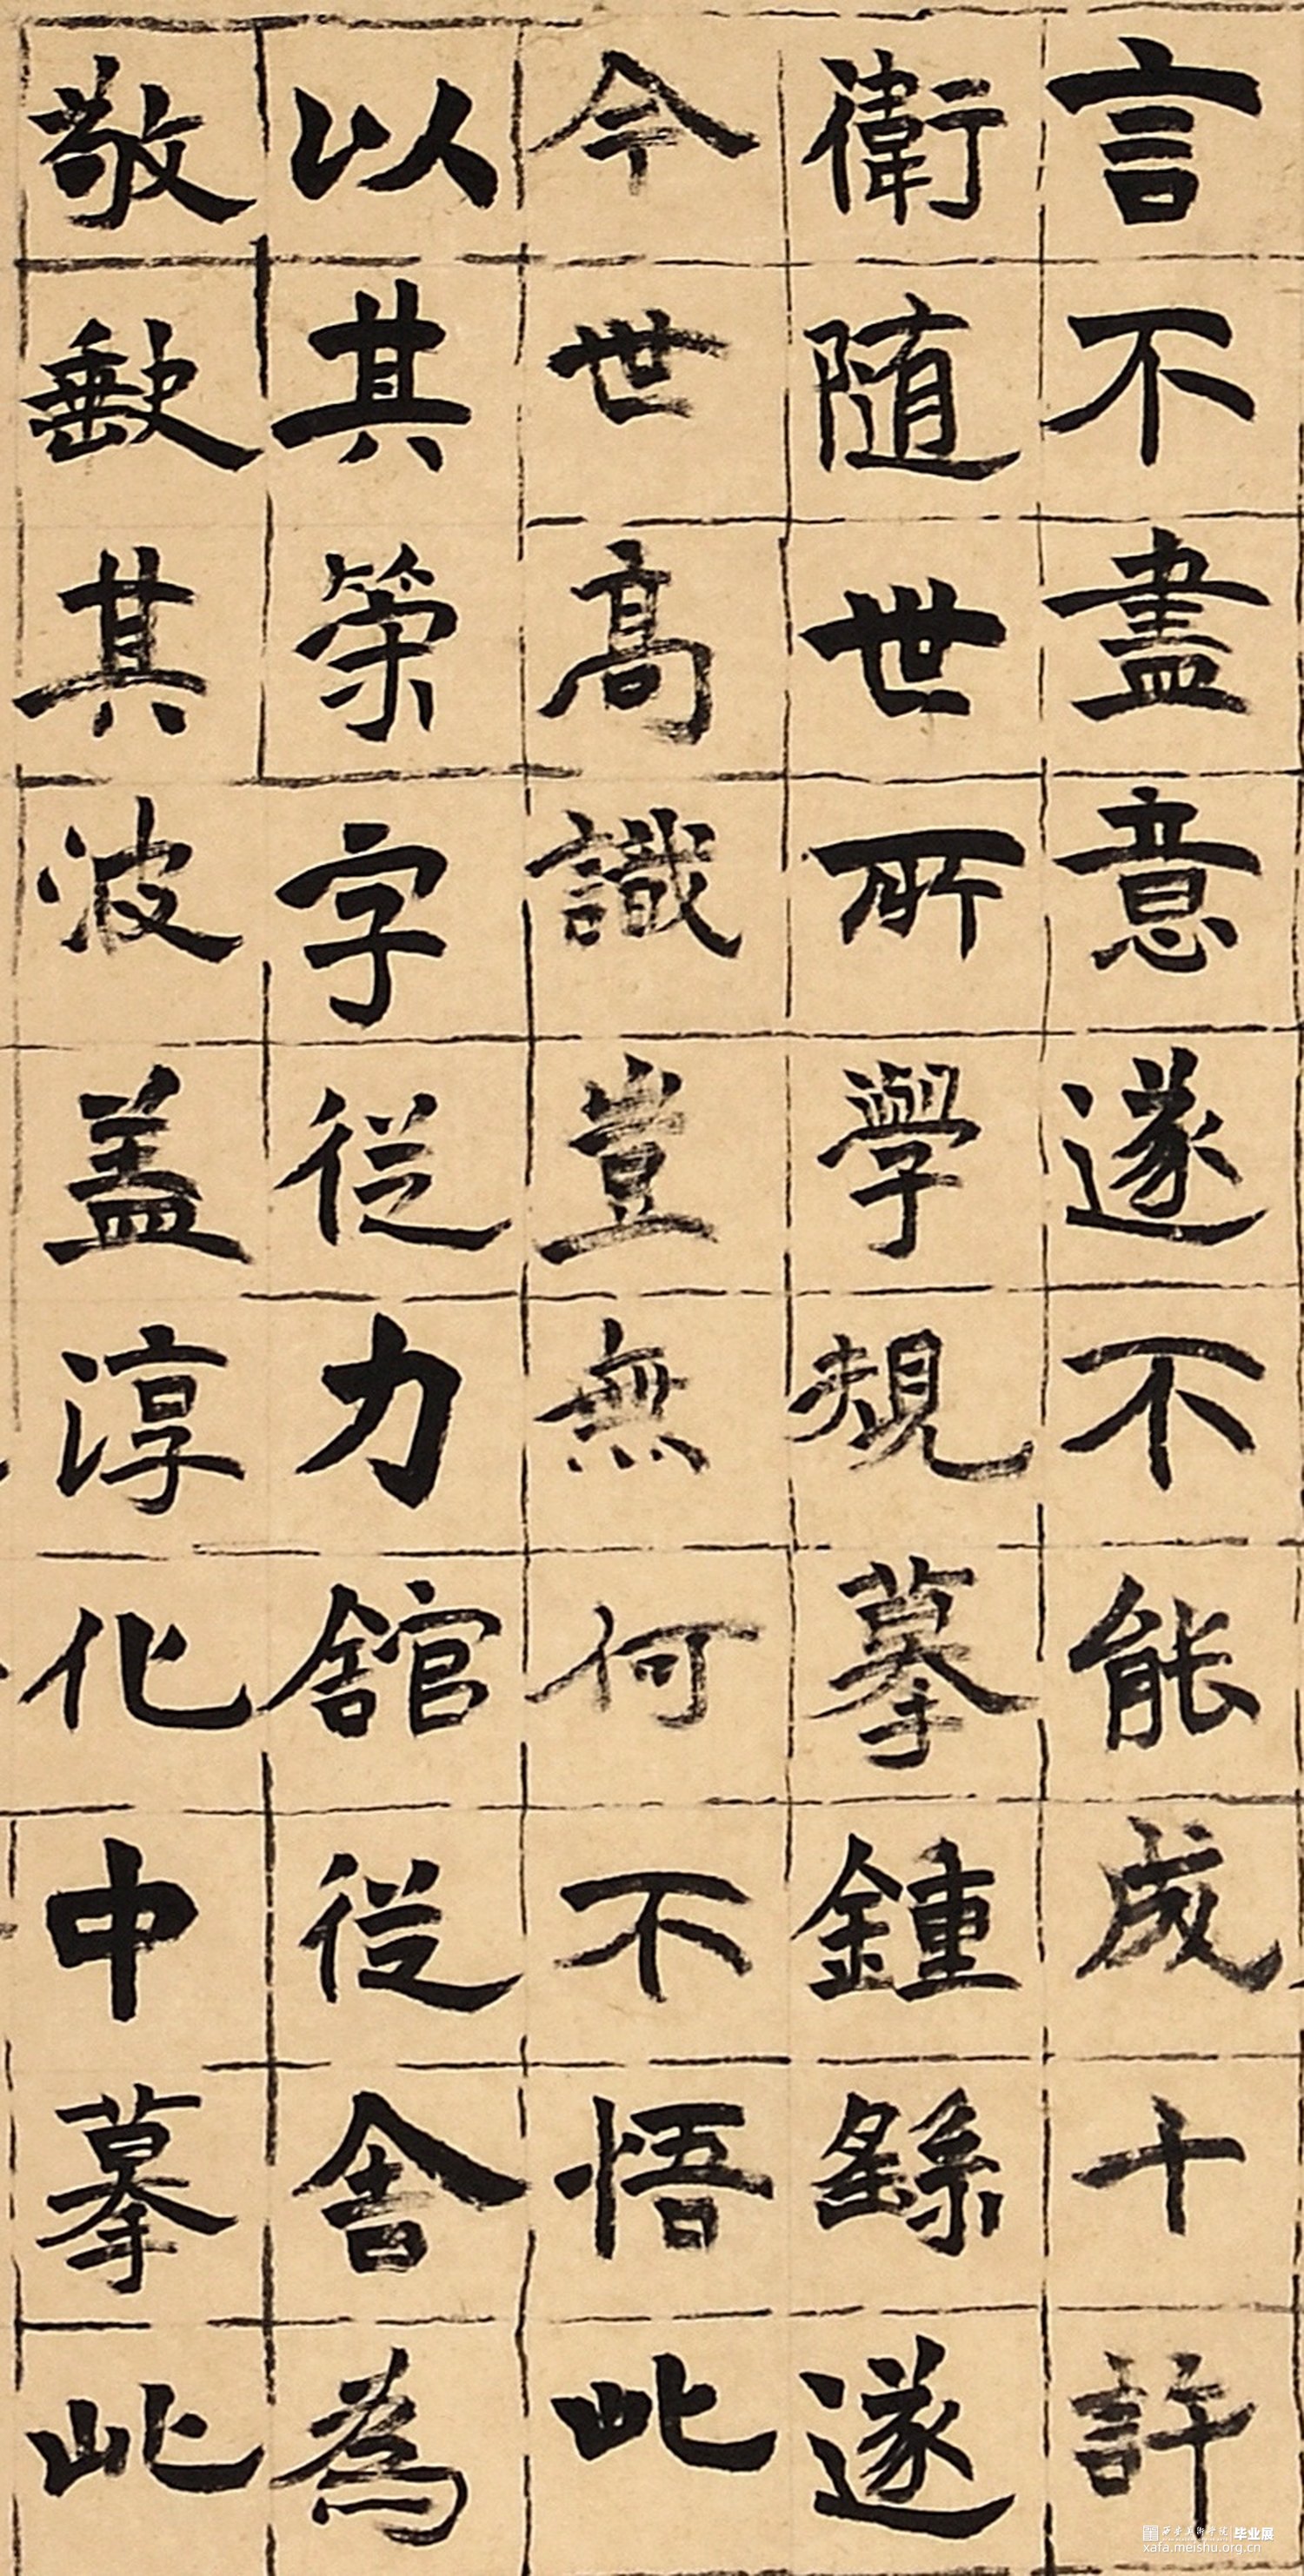 言不盡意遂不能成十許
衛随世所學規摹鍾繇遂
今世高識豈無何不悟此
以其策字從力舘從舍為
敬其波盖淳化中摹此
西安美术学院 毕业展
xafa.meishu.org.cn